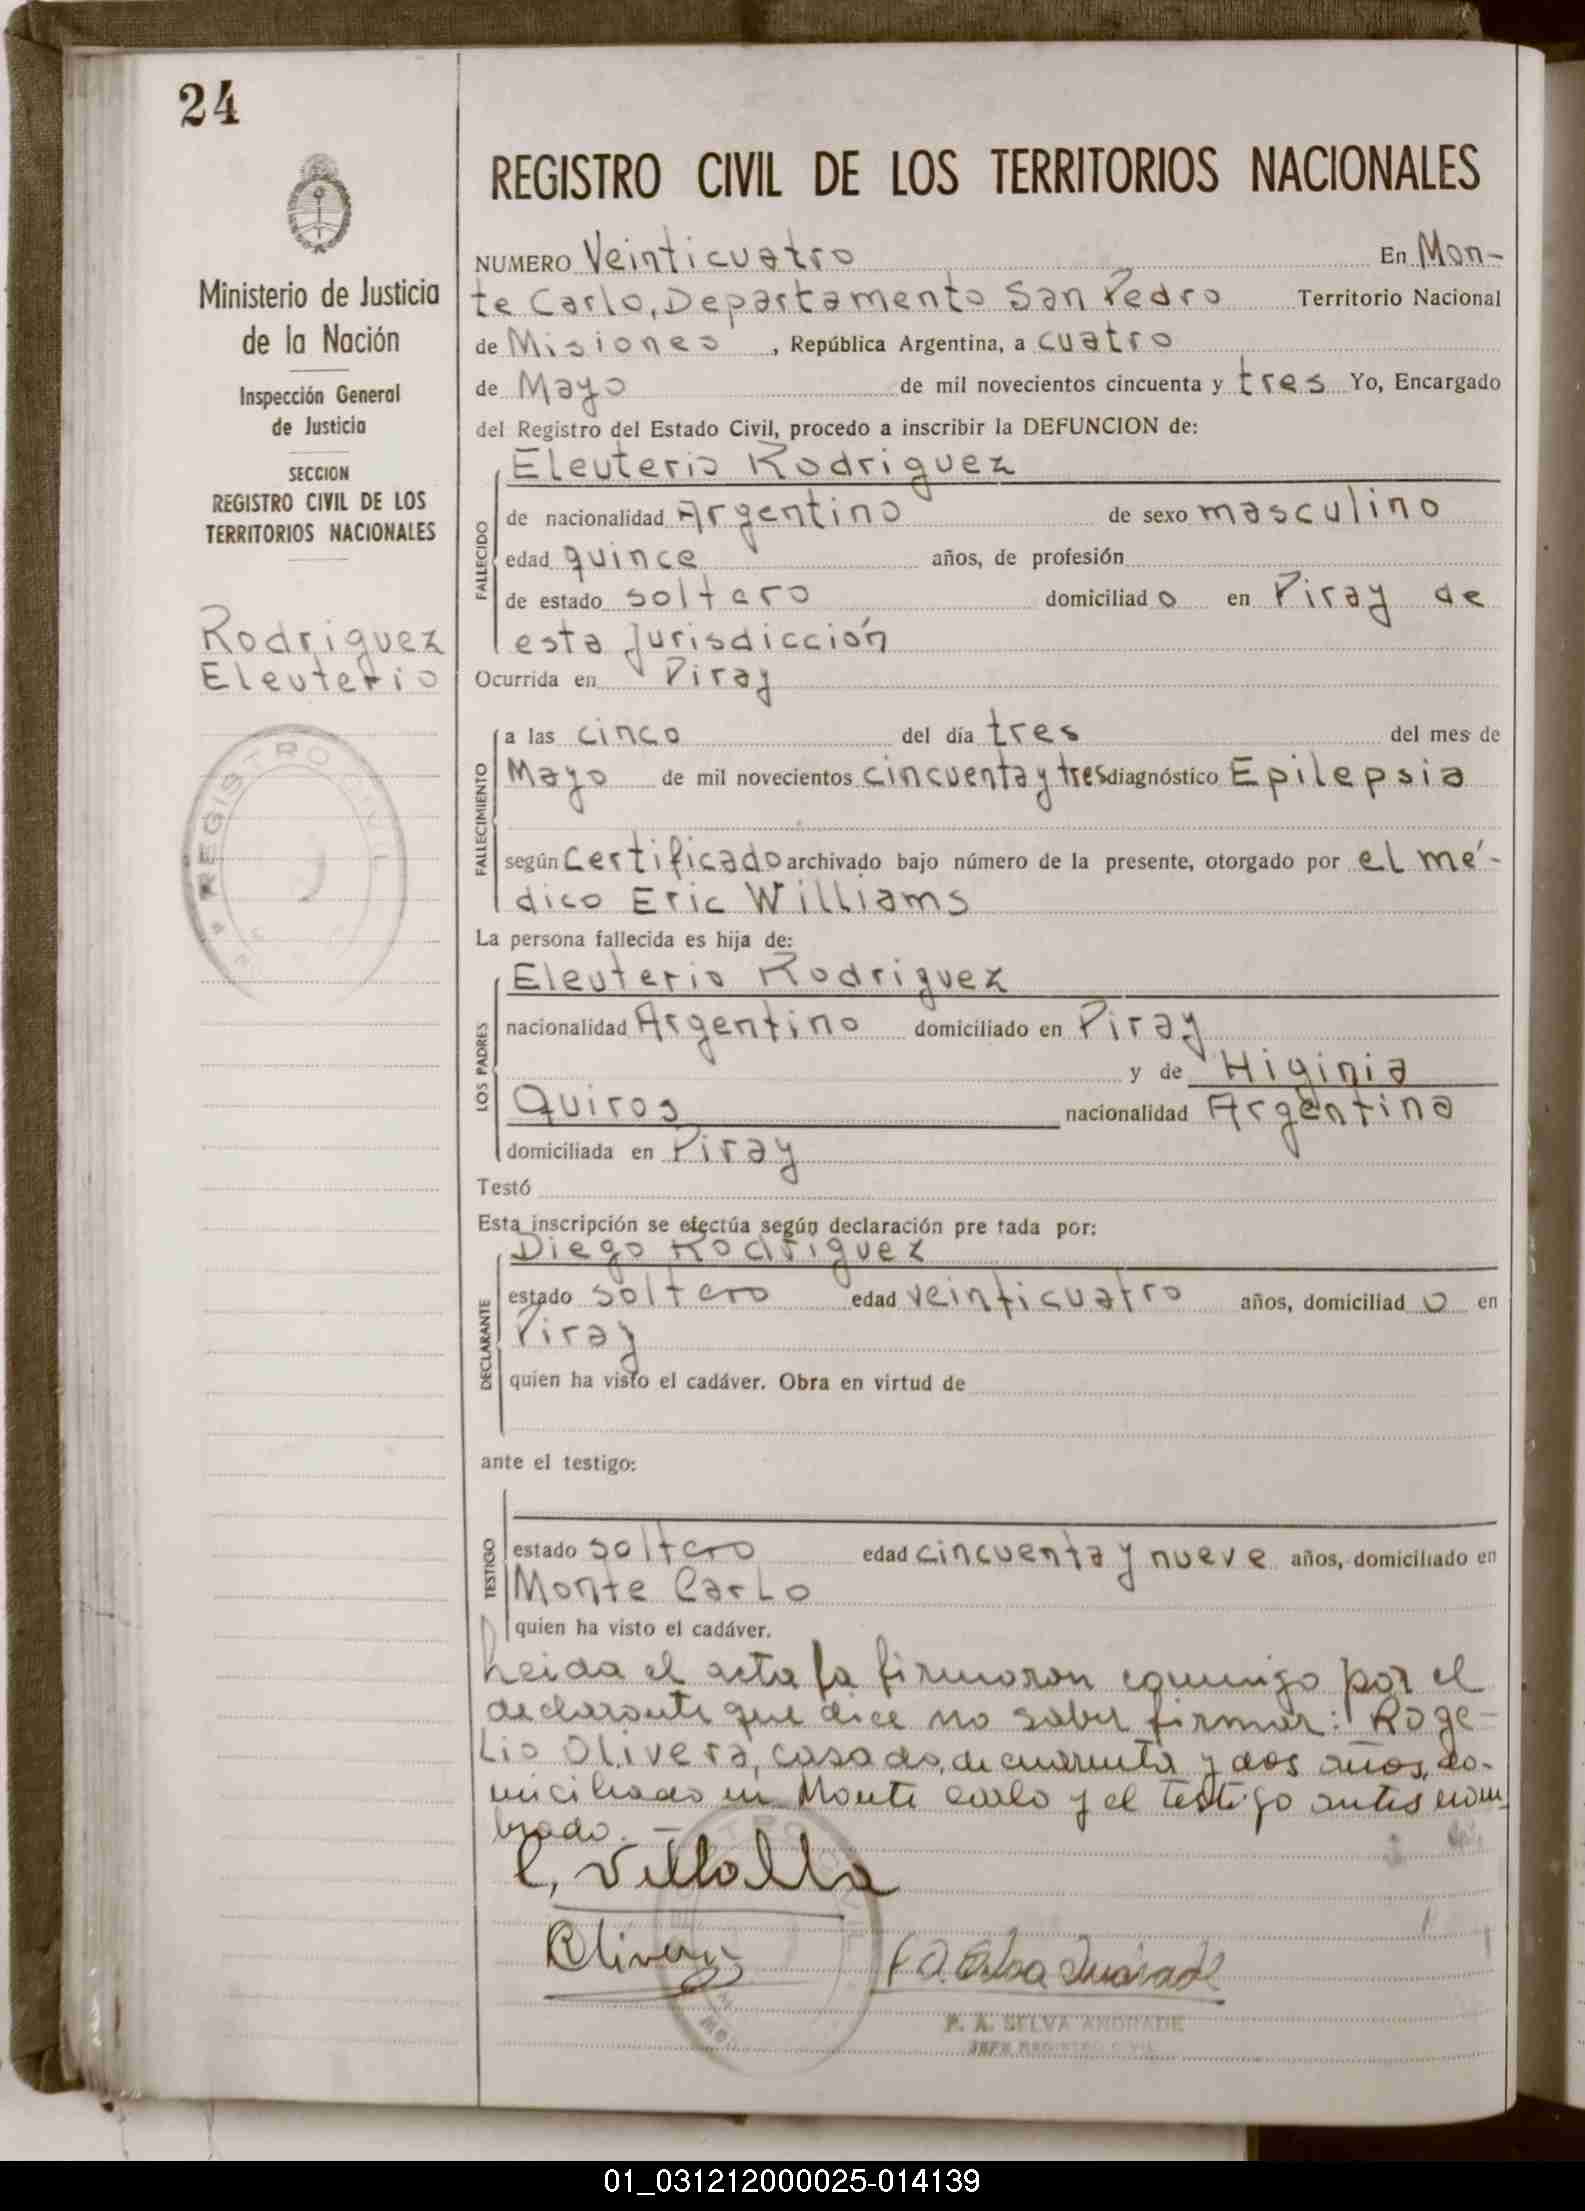 24
Ministerio de Justicia
de la Nación
Inspección General
de Justicia
SECCION
REGISTRO CIVIL DE LOS
TERRITORIOS NACIONALES
Rodriguez
Eleuterio
REGISTRO CIVIL
REGISTRO CIVIL DE LOS TERRITORIOS NACIONALES
NUMERO Veinticuatro En Mon-
te Carlo, Departamento San Pedro Territorio Nacional
de Misiones, República Argentina, a cuatro
de Mayo de mil novecientos cincuenta y tres Yo, Encargado
del Registro del Estado Civil, procedo a inscribir la DEFUNCION de:
Eleuterio Rodriguez
FALLECIDO
de nacionalidad Argentino de sexo masculino
edad quince años, de profesión
de estado soltero domiciliad o en Piray de
esta Jurisdicción
Ocurrida en Piray
FALLECIMIENTO
a las cinco del día tres del mes de
Mayo de mil novecientos cincuenta y tres diagnóstico Epilepsia
según Certificado archivado bajo número de la presente, otorgado por el mé-
dico Eric Williams
La persona fallecida es hija de:
LOS PADRES
Eleuterio Rodriguez
nacionalidad Argentino domiciliado en Piray
y de Higinia
Quiros nacionalidad Argentina
domiciliada en Piray
Testó
Esta inscripción se efectúa según declaración pre tada por:
DECLARANTE
Diego Rodriguez
estado soltero edad veinticuatro años, domiciliad o en
Piray
quien ha visto el cadáver. Obra en virtud de
ante el testigo:
TESTIGO
estado soltero edad cincuenta y nueve años, domiciliado en
Monte Carlo
quien ha visto el cadáver.
Leida el acta la firmaron conmigo por el
declarante que dice no saber firmar: Roge-
lio Olivera, casado, de cuarenta y dos años, do-
miciliado en Monte Carlo y el testigo antes nom
brado. -
C. Villalba
Olivera
P. A. Selva Andrade
P. A. SELVA ANDRADE
JEFE REGISTRO CIVIL
01_031212000025-014139